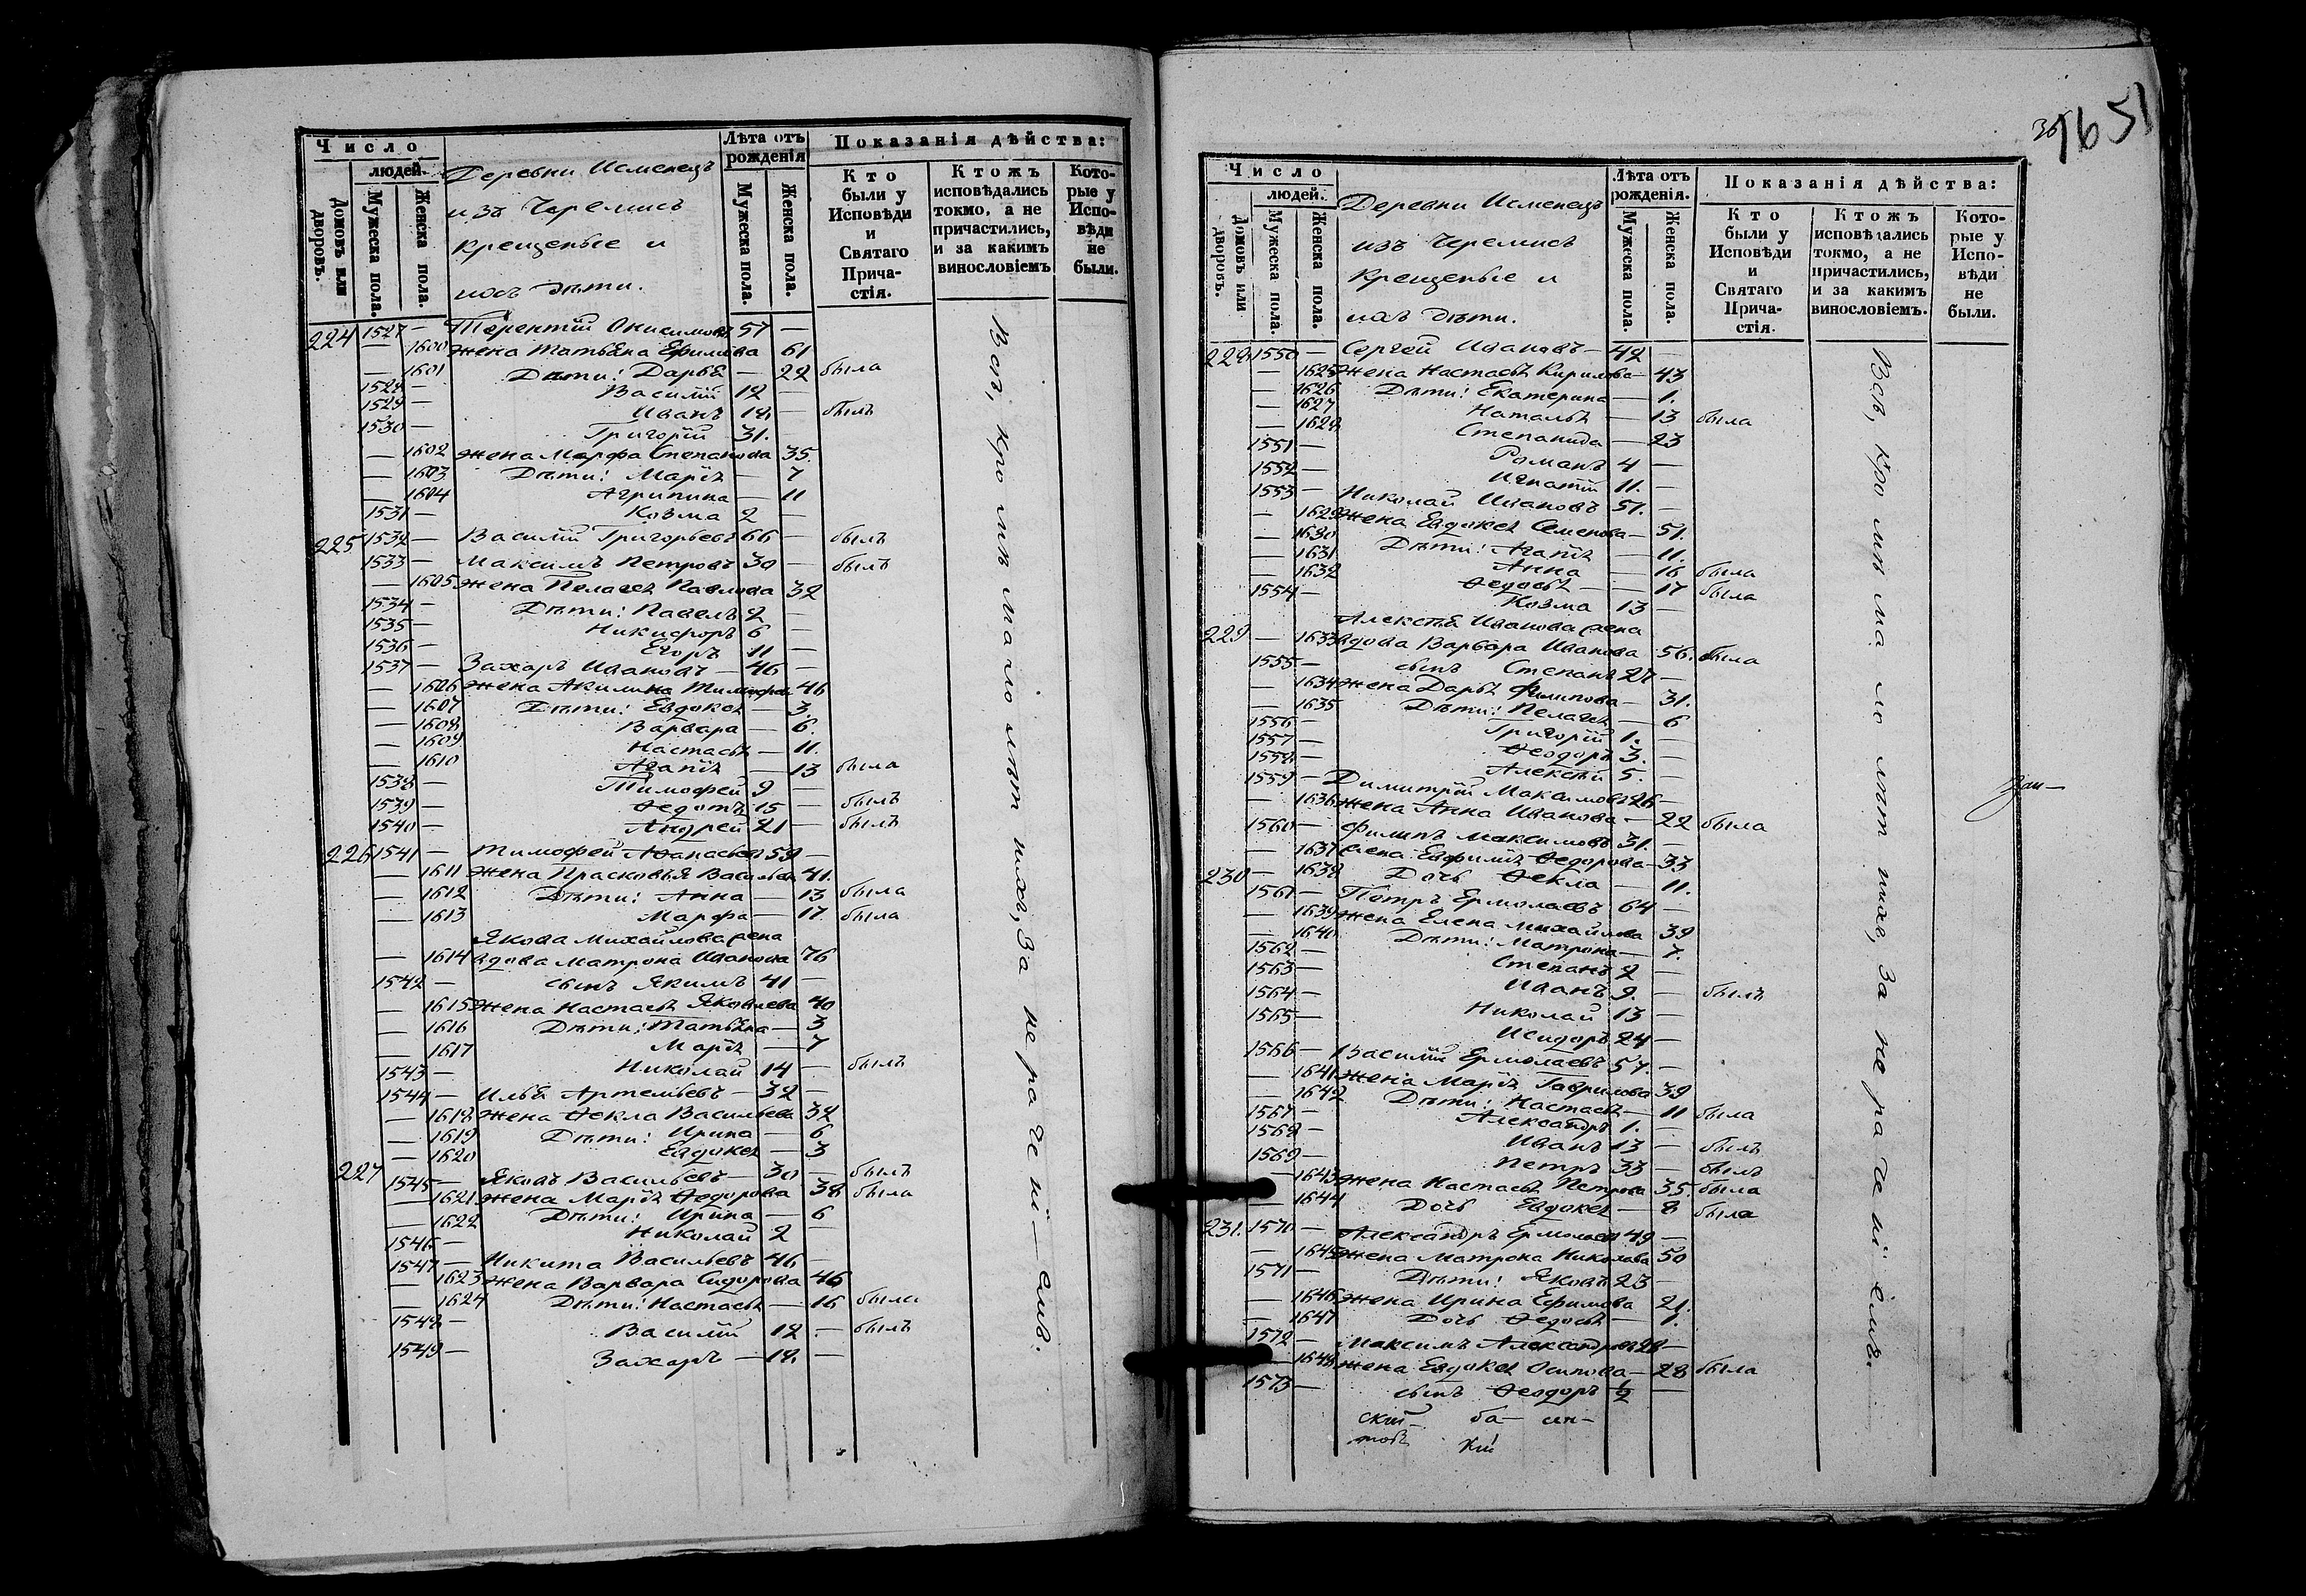 Число
людей.
Домовъ или дворовъ.
Мужеска пола.
Женска пола.
Деревни Исменецъ
изъ Черемисъ
крещеные и
ихъ дѣти.
Лѣта отъ рожденія
Мужеска пола.
Женска пола.
Показанія дѣйства:
Кто были у Исповѣди и Святаго Прича-стія.
Ктожъ исповѣдались токмо, а не причастились, и за какимъ винословіемъ
Кото-рые у Испо-вѣди не были.
224 1527 — Терентій Онисимовъ 57 —
— 1600 жена Татьяна Ефимова 61
— 1601 Дѣти: Дарья — 22 была
1528 — Василій 12 —
1529 — Иванъ 18 — былъ
1530 — Григорій 31. —
— 1602 жена Марфа Степанова 35.
— 1603 Дѣти: Марія — 7
— 1604 Агрипина — 11
1531 — Козма 2 —
225 1532 — Василій Григорьевъ 66 — былъ
1533 — Максимъ Петровъ 30 — былъ
— 1605 жена Пелагея Павлова 32
1534 — Дѣти: Павелъ 2 —
1535 — Никифоръ 6 —
1536 — Егоръ 11 —
1537 — Захаръ Ивановъ — 46 —
— 1606 жена Акилина Тимофеева 46
— 1607 Дѣти: Евдокея — 3.
— 1608 Варвара — 6.
— 1609 Настасья — 11.
— 1610 Агапія — 13 была
1538 — Тимофей 9 —
1539 — Ѳедотъ 15 — былъ
1540 — Андрей 21 — былъ
226 1541 — Тимофей Аѳанасьевъ 59 —
— 1611 жена Прасковья Васильева 41.
— 1612 Дѣти: Анна — 13 была
— 1613 Марфа — 17. была
Якова Михайлова жена
— 1614 вдова Матрона Иванова 76
1542 — сынъ Якимъ 41 —
— 1615 жена Настасья Яковлева 40
— 1616 Дѣти: Татьяна — 3
— 1617 Марія — 7
1543 — Николай 14 — былъ
1544 — Илья Артемьевъ — 32 —
— 1618 жена Ѳекла Васильева 32
— 1619 Дѣти: Ирина — 6
— 1620 Евдокея — 3
227 1545 — Яковъ Васильевъ — 30 — былъ
— 1621 жена Марія Ѳедорова 38 была
— 1622 Дѣти: Ирина — 6
1546 — Николай 2 —
1547 — Никита Васильевъ 46 —
— 1623 жена Варвара Сидорова 46
— 1624 Дѣти: Настасья — 16 была
1548 — Василій 12 — былъ
1549 — Захаръ — 18. —
Всѣ, кромѣ малолѣтнихъ, за нераченіемъ.
1651
Число
людей.
Домовъ или дворовъ.
Мужеска пола.
Женска пола.
Деревни Исменецъ
изъ Черемисъ
крещеные и
ихъ дѣти.
Лѣта отъ рожденія.
Мужеска пола.
Женска пола.
Показанія дѣйства:
Кто были у Исповѣди и Святаго Прича-стія.
Ктожъ исповѣдались токмо, а не причастились, и за какимъ винословіемъ.
Кото-рые у Испо-вѣди не были.
228 1550 — Сергей Ивановъ — 42 —
— 1625 жена Настасья Кирилова — 43
— 1626 Дѣти: Екатерина — 1.
— 1627 Наталья — 13 была
— 1628 Степанида — 23
1551 — Романъ 4 —
1552 — Игнатій 11. —
1553 — Николай Ивановъ 51. —
— 1629 жена Евдокея Семенова — 51.
— 1630 Дѣти: Агапія — 11.
— 1631 Анна — 16 была
— 1632 Ѳедосья — 17 была
1554 — Козма 13 —
Алексѣя Иванова жена
229 — 1633 вдова Варвара Иванова 56. была
1555 — сынъ Степанъ 27 —
— 1634 жена Дарья Филипова — 31.
— 1635 Дѣти: Пелагея — 6
1556 — Григорій 1. —
1557 — Ѳеодоръ 3. —
1558 — Алексѣй 5. —
1559 — Димитрій Максимовъ 26 —
— 1636 жена Анна Иванова — 22 была
1560 — Филипъ Максимовъ 31. —
— 1637 жена Евфимія Ѳедорова — 33
230 — 1638 Дочь Ѳекла — 11.
1561 — Петръ Ермолаевъ 64 —
— 1639 жена Елена Михайлова 39
— 1640 Дѣти: Матрона — 7.
1562 — Степанъ 2 —
1563 — Иванъ 9. — былъ
1564 — Николай 13 —
1565 — Исидоръ 24 —
1566 — Василій Ермолаевъ 57. —
— 1641 жена Марія Гаврилова 39
— 1642 Дѣти: Настасья — 11 была
1567 — Александръ 1. —
1568 — Иванъ 13 — былъ
1569 — Петръ 33 — былъ
— 1643 жена Настасья Петрова 35. была
— 1644 Дочь Евдокея — 8 была
231. 1570 — Александръ Ермолаевъ 49 —
— 1645 жена Матрона Николаева 50
1571 — Дѣти: Яковъ 23 —
— 1646 жена Ирина Ефимова 21.
— 1647 Дочь Ѳедосья — 1.
1572 — Максимъ Александровъ 28 —
— 1648 жена Евдокея Осипова — 28 была
1573 — сынъ Ѳеодоръ 1/2 —
Всѣ, кромѣ малолѣтнихъ, за нераченіемъ.